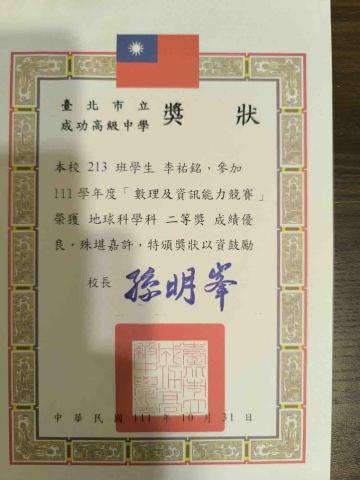 臺北市立
成功高級中學
獎狀
本校 213 班學生 李祐銘，參加
111 學年度「數理及資訊能力競賽」
榮獲 地球科學科 二等獎 成績優
良，殊堪嘉許，特頒獎狀以資鼓勵
校長 孫明峯
中華民國 111 年 10 月 31 日